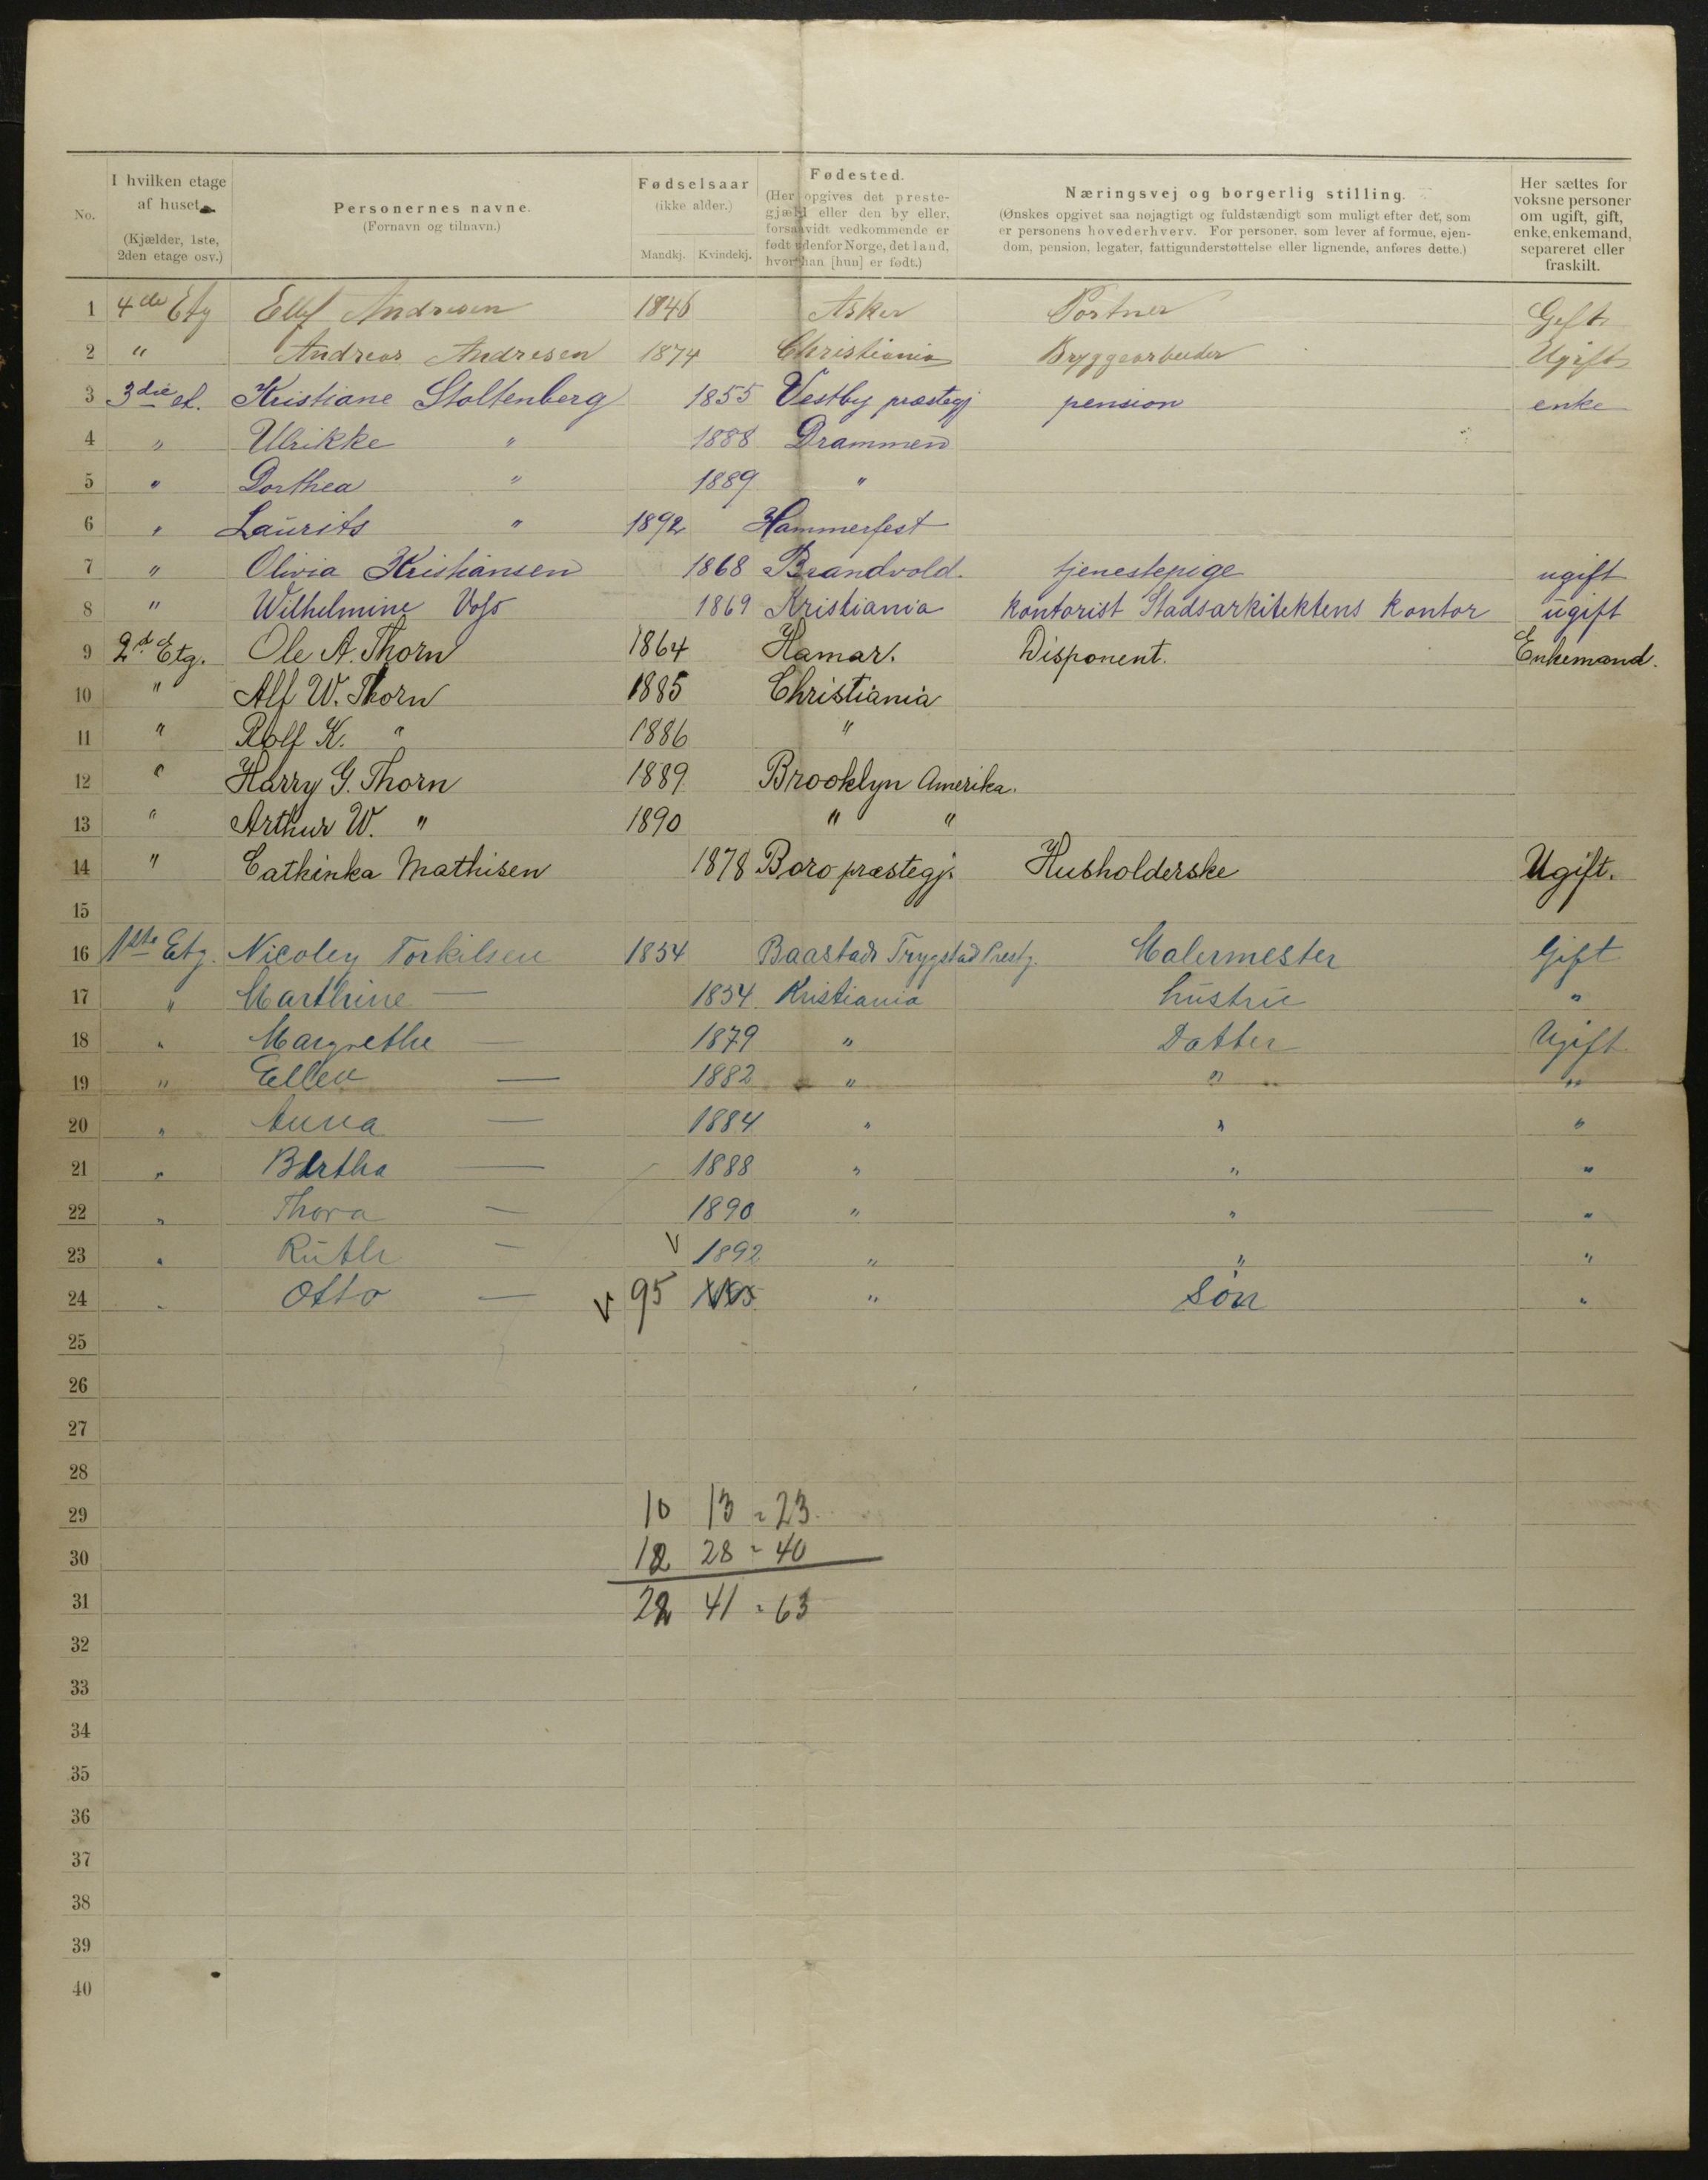 No. I hvilken etage af huset. (Kjælder, 1ste, 2den etage osv.) Personernes navne. (Fornavn og tilnavn.) Fødselsaar (ikke alder.) Mandkj. Kvindekj. Fødested. (Her opgives det prestegjæld eller den by eller, forsaavidt vedkommende er født udenfor Norge, det land, hvor han [hun] er født.) Næringsvej og borgerlig stilling. (Ønskes opgivet saa nøjagtigt og fuldstændigt som muligt efter det, som er personens hovederhverv. For personer, som lever af formue, ejendom, pension, legater, fattigunderstøttelse eller lignende, anføres dette.) Her sættes for voksne personer om ugift, gift, enke, enkemand, separeret eller fraskilt.
1 4de Etg Ellef Andresen 1846 Asker Portner Gift
2 " Andreas Andresen 1874 Christiania Bryggearbeider Ugift
3 3die et. Kristiane Stoltenberg 1855 Vestby præstegj pension enke
4 " Ulrikke " 1888 Drammen
5 " Dorthea " 1889 "
6 " Laurits " 1892 Hammerfest
7 " Olivia Kristiansen 1868 Brandvold. tjenestepige ugift
8 " Wilhelmine Voss 1869 Kristiania kontorist Stadsarkitektens kontor ugift
9 2d Etg. Ole A. Thorn 1864 Hamar. Disponent. Enkemand.
10 " Alf W. Thorn 1885 Christiania
11 " Rolf K. " 1886 "
12 " Harry G. Thorn 1889 Brooklyn Amerika.
13 " Arthur W. " 1890 " "
14 " Cathinka Mathisen 1878 Boro præstegj. Husholderske Ugift.
15
16 1ste Etg. Nicoley Torkilsen 1854 Baastad Trygstad Prestg. Malermester Gift
17 " Marthine — 1854 Kristiania hustru "
18 " Margrethe — 1879 " Datter Ugift
19 " Ellen — 1882 " " "
20 " Anna — 1884 " " "
21 " Bertha — 1888 " " "
22 " Thora — 1890 " " "
23 " Ruth — v 1892 " " "
24 " Otto — v 95 " Søn "
25
26
27
28
29 10 13 = 23.
30 12 28 = 40
31 22 41 = 63
32
33
34
35
36
37
38
39
40